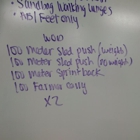 • Standing Walking Lunges
• No/Feet only
WOD
100 meter Sled push (weight)
100 meter Sled push (no weight)
100 meter sprint back
100 Farmer carry
X2